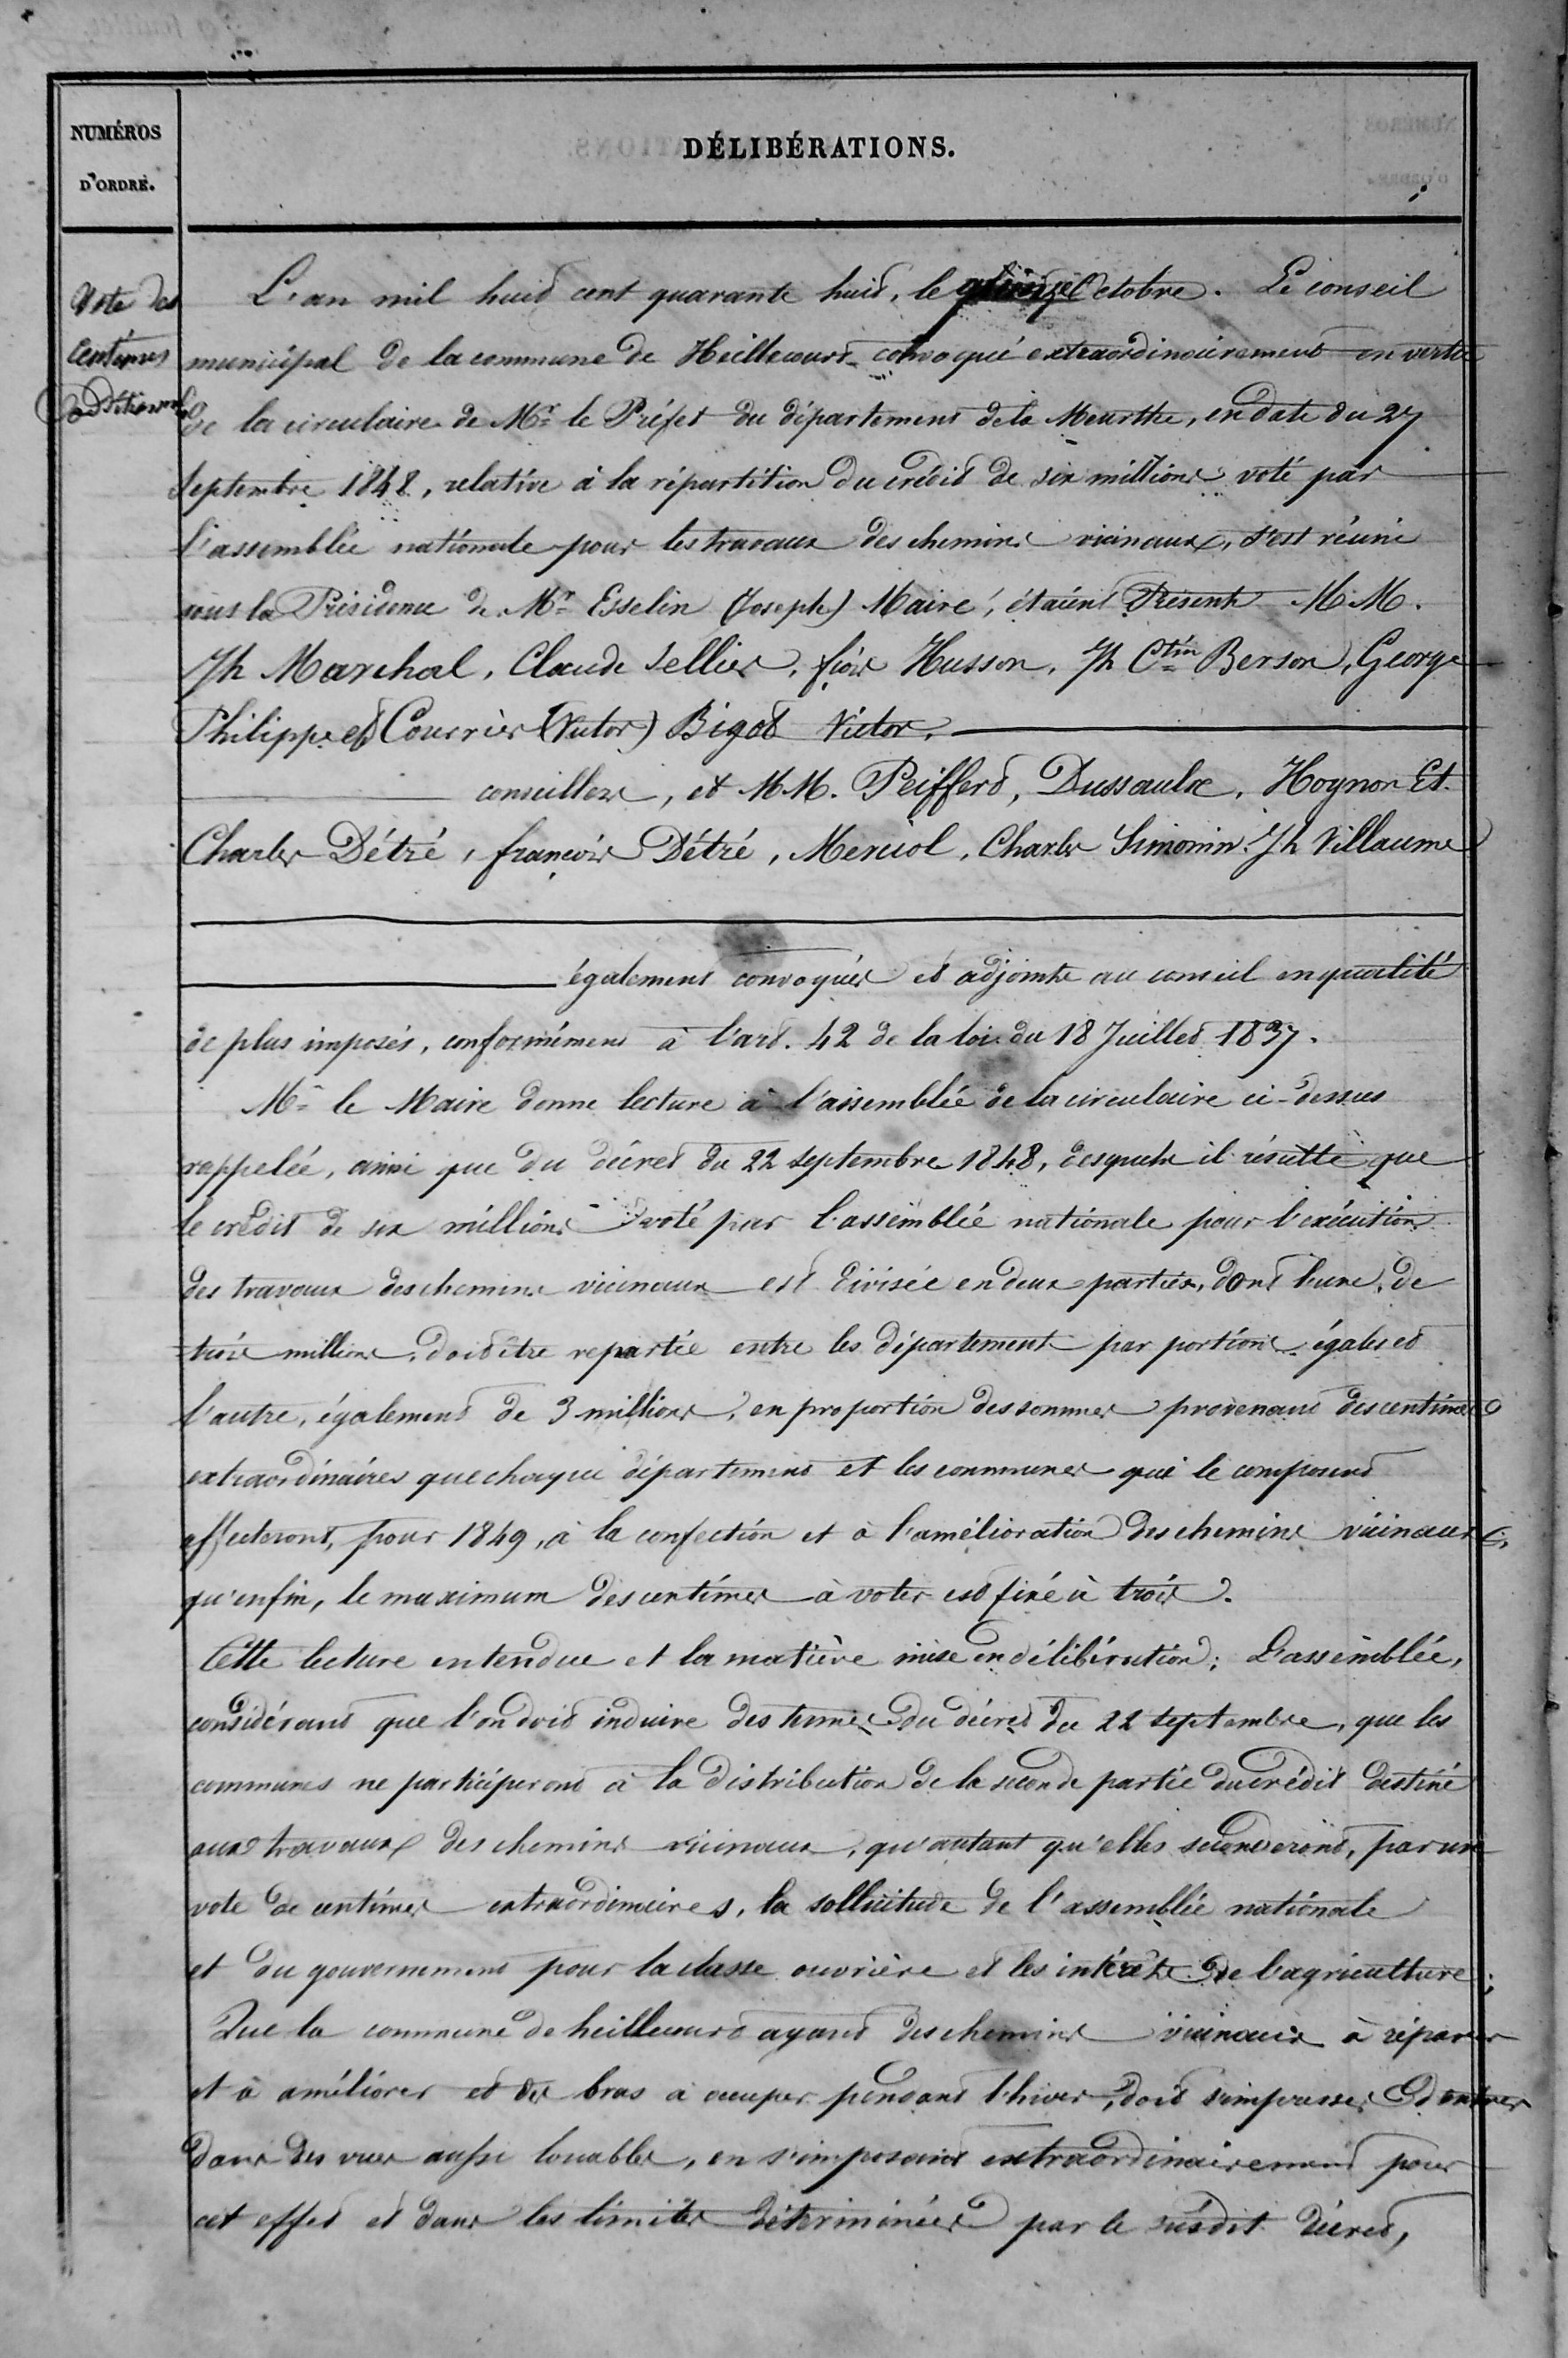 NUMÉROS
D'ORDRE.
DÉLIBÉRATIONS.
Vote des
Centimes
additionnels
L'an mil huit cent quarante huit, le quinze Octobre. Le conseil
municipal de la commune de Heillecourt convoqué extraordinairement en vertu
de la circulaire de Mr le Préfet du département de la Meurthe, en date du 27
Septembre 1848, relative à la répartition du crédit de six millions voté par
l'assemblée nationale pour les travaux des chemins vicinaux, s'est réuni
sous la Présidence de Mr Esselin (Joseph) Maire, étaient Présents M.M.
Jh Marchal, Claude Sellier, fçois Husson, Jh Ctin Berson, George
Philippe et Courrier (Victor) Bigot Victor,
conseillers, et MM. Peiffert, Dussaulx, Hognon Et.
Charles Détré, françois Détré, Merciol, Charles Simonin, Jh Villaume
également convoqués et adjoints au conseil en qualité
de plus imposés, conformément à l'art. 42 de la loi du 18 Juillet 1837.
Mr le Maire donne lecture à l'assemblée de la circulaire ci-dessus
rappelée, ainsi que du décret du 22 septembre 1848, desquels il résulte que
le crédit de six millions voté par l'assemblée nationale pour l'exécution
des travaux des chemins vicinaux est divisée en deux parties, dont l'une, de
trois millions, doit être repartie entre les départements par portions égales et
l'autre, également de 3 millions, en proportion des sommes provenant des centimes
extraordinaires que chaque département et les communes qui le composent
affecteront, pour 1849, à la confection et à l'amélioration des chemins vicinaux;
qu'enfin, le maximum des centimes à voter est fixé à trois.
Cette lecture entendue et la matière mise en délibération; L'assemblée,
considérant que l'on doit induire des termes du décret du 22 septembre, que les
communes ne participeront à la distribution de la seconde partie du crédit destiné
aux travaux des chemins vicinaux, qu'autant qu'elles seconderont, par un
vote de centimes extraordinaires, la sollicitude de l'assemblée nationale
et du gouvernement pour la classe ouvrière et les intérêts de l'agriculture;
Que la commune de heillecourt ayant des chemins vicinaux à réparer
et à améliorer et des bras à occuper pendant l'hiver, doit s'impresser d'entrer
dans des vues aussi louables, en s'imposant extraordinairement pour
cet effet et dans les limites déterminées par le susdit décret,